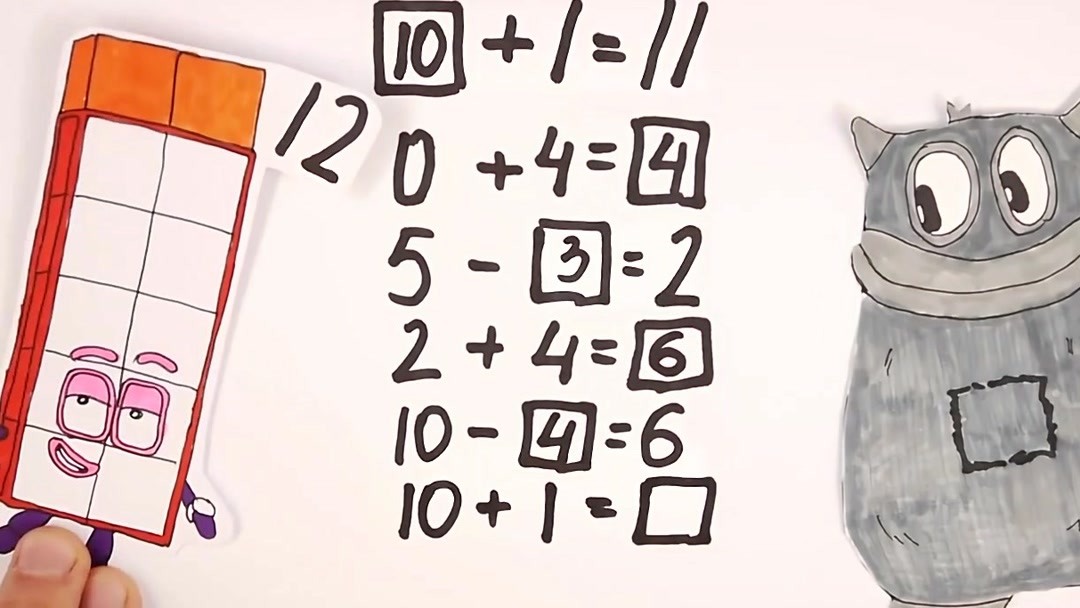 12
10 + 1 = 11
0 + 4 = 4
5 - 3 = 2
2 + 4 = 6
10 - 4 = 6
10 + 1 =